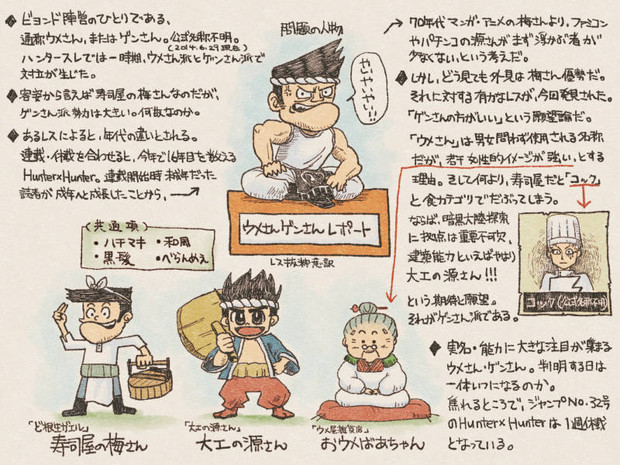 ビヨンド陣営のひとりである、
通称ウメさん、またはゲンさん。公式名称不明。
(2014.6.29現在)
ハンタースレでは一時期、ウメさん派とゲンさん派で
対立が生じた。
容姿から言えば寿司屋の梅さんなのだが、
ゲンさん派勢力は大きい。何故なのか。
あるレスによると、年代の違いとされる。
連載・休載を合わせると、今年で16年目を数える
Hunter×Hunter。連載開始時 幼年だった
読者が成年へと成長したことから、
問題の人物
やいやいやい!!
ウメさんゲンさんレポート
レス抜粋意訳
70年代マンガ・アニメの梅さんより、ファミコン
やパチンコの源さんがまず浮かぶ者が
少なくない、という考えだ。
しかし、どう見ても外見は梅さん優勢だ。
それに対する有力なレスが、今回発見された。
「ゲンさんの方がいい」という願望論だ。
「ウメさん」は男女問わず使用される名称
だが、若干女性的イメージが強い、とする
理由。そして何より、寿司屋だと「コック」
と食カテゴリでだぶってしまう。
ならば、暗黒大陸探索
に拠点は重要不可欠、
建築能力といえばやはり
大工の源さん!!!
という期待と願望。
それがゲンさん派である。
コック(公式名称不明)
(共通項)
・ハチマキ ・和風
・黒髪 ・べらんめえ
「ど根性ガエル」
寿司屋の梅さん
「大工の源さん」
大工の源さん
おウメばあちゃん
実名・能力に大きな注目が集まる
ウメさん・ゲンさん。判明する日は
一体いつになるのか。
焦れるところで、ジャンプNO.32号
のHunter×Hunterは1週休載
となっている。